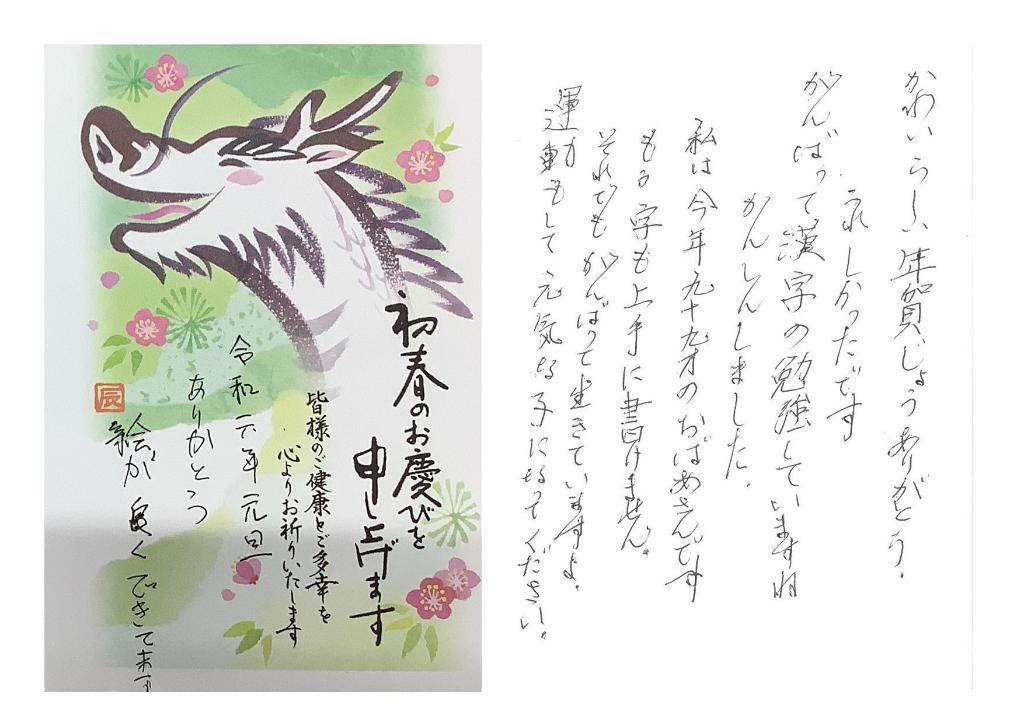 初春のお慶びを
申し上げます
皆様のご健康とご多幸を
心よりお祈りいたします
令和六年元旦
ありがとう
絵が良くできてます
辰
かわいらしい年賀じょうありがとう。
うれしかったです
がんばって漢字の勉強していますね
かんしんしました。
私は今年九十九才のおばあさんです
もう字も上手に書けません。
それでもがんばって生きていますよ。
運動もして元気な子になってください。